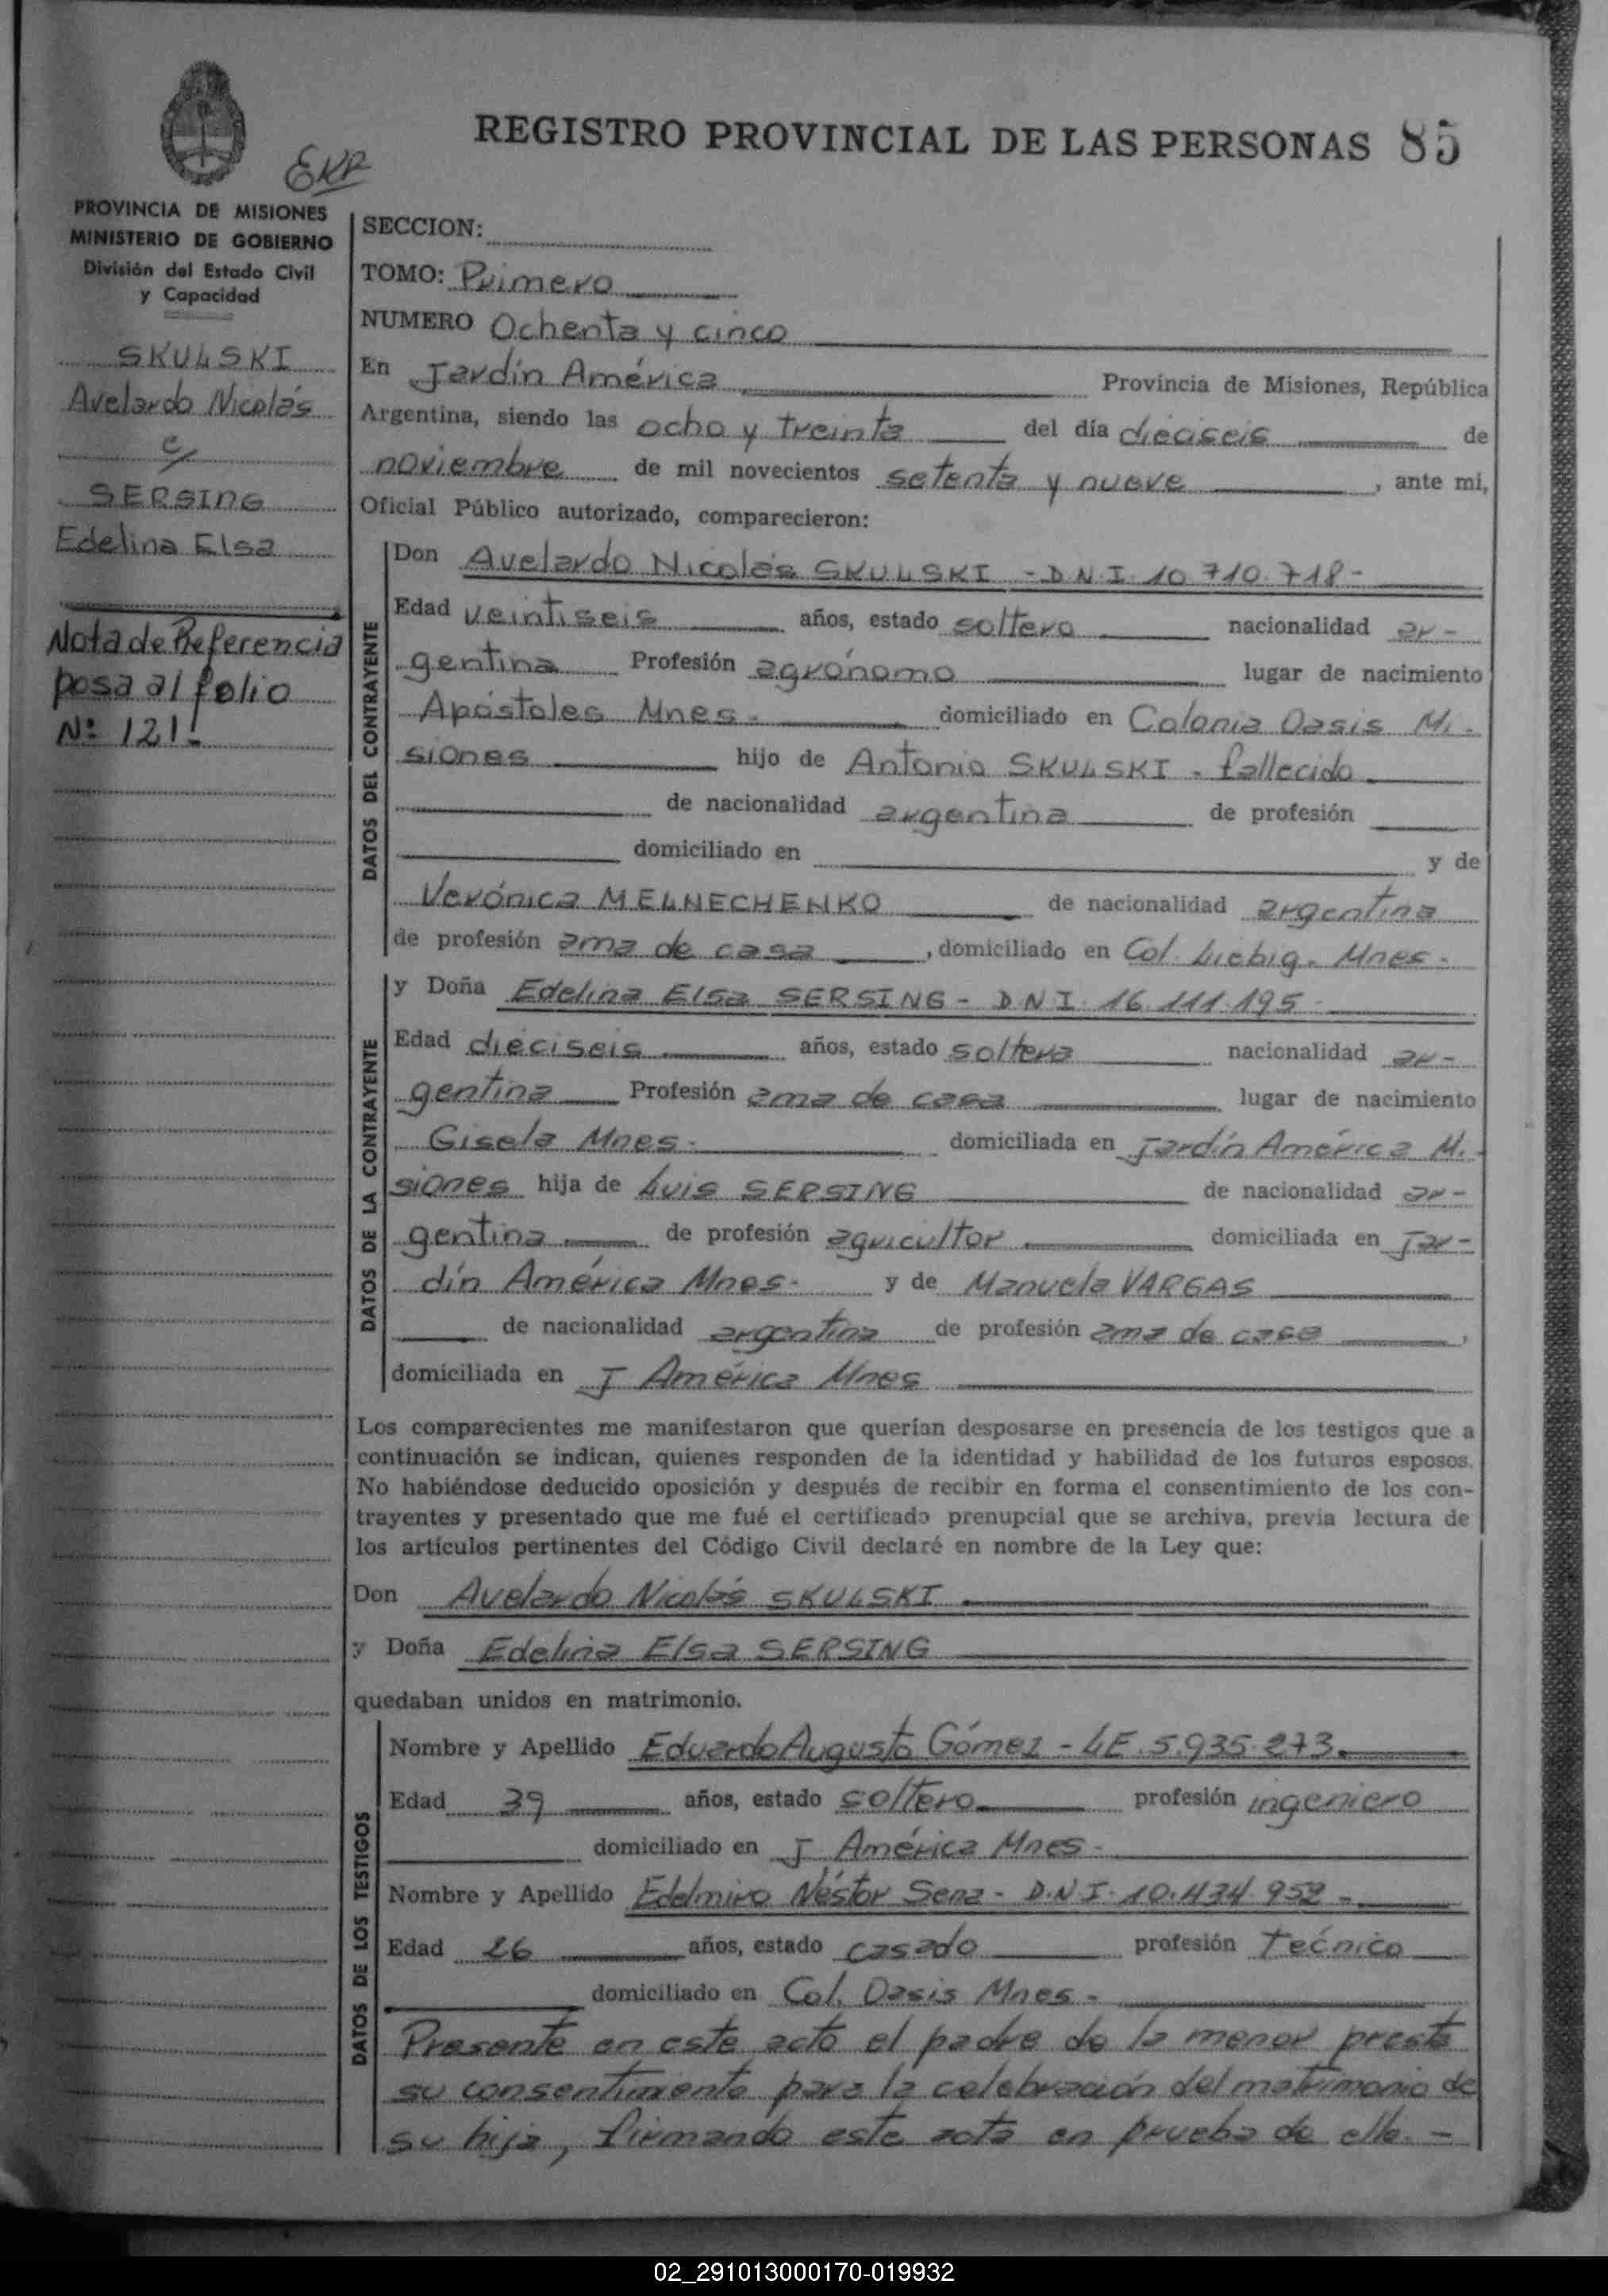 REGISTRO PROVINCIAL DE LAS PERSONAS 85
PROVINCIA DE MISIONES
MINISTERIO DE GOBIERNO
División del Estado Civil
y Capacidad
SKULSKI
Avelardo Nicolás
c/
SERSING
Edelina Elsa
Nota de Referencia
pasa al folio
Nº 121!
SECCION:
TOMO: Primero
NUMERO Ochenta y cinco
En Jardín América Provincia de Misiones, República
Argentina, siendo las ocho y treinta del día dieciseis de
noviembre de mil novecientos setenta y nueve, ante mi,
Oficial Público autorizado, comparecieron:
DATOS DEL CONTRAYENTE
Don Avelardo Nicolás SKULSKI - D.N.I. 10.710.718-
Edad veintiseis años, estado soltero nacionalidad ar-
gentina Profesión agrónomo lugar de nacimiento
Apóstoles Mnes. domiciliado en Colonia Oasis Mi-
siones hijo de Antonio SKULSKI - fallecido
de nacionalidad argentina de profesión
domiciliado en y de
Verónica MELNECHENKO de nacionalidad argentina
de profesión ama de casa, domiciliado en Col. Liebig. Mnes.
DATOS DE LA CONTRAYENTE
y Doña Edelina Elsa SERSING - D N I. 16.111.195-
Edad dieciseis años, estado soltera nacionalidad ar-
gentina Profesión ama de casa lugar de nacimiento
Gisela Mnes. domiciliada en Jardín América Mi-
siones hija de Luis SERSING de nacionalidad ar-
gentina de profesión agricultor domiciliada en Jar-
dín América Mnes. y de Manuela VARGAS
de nacionalidad argentina de profesión ama de casa,
domiciliada en J América Mnes
Los comparecientes me manifestaron que querían desposarse en presencia de los testigos que a
continuación se indican, quienes responden de la identidad y habilidad de los futuros esposos.
No habiéndose deducido oposición y después de recibir en forma el consentimiento de los con-
trayentes y presentado que me fué el certificado prenupcial que se archiva, previa lectura de
los artículos pertinentes del Código Civil declaré en nombre de la Ley que:
Don Avelardo Nicolás SKULSKI
y Doña Edelina Elsa SERSING
quedaban unidos en matrimonio.
DATOS DE LOS TESTIGOS
Nombre y Apellido Eduardo Augusto Gómez - L E. 5.935.273.
Edad 39 años, estado soltero profesión ingeniero
domiciliado en J América Mnes-
Nombre y Apellido Edelmiro Néstor Sena - D.N I. 10.434.952-
Edad 26 años, estado casado profesión Técnico
domiciliado en Col. Oasis Mnes-
Presente en este acto el padre de la menor presta
su consentimiento para la celebración del matrimonio de
su hija, firmando este acta en prueba de ello. -
02_291013000170-019932